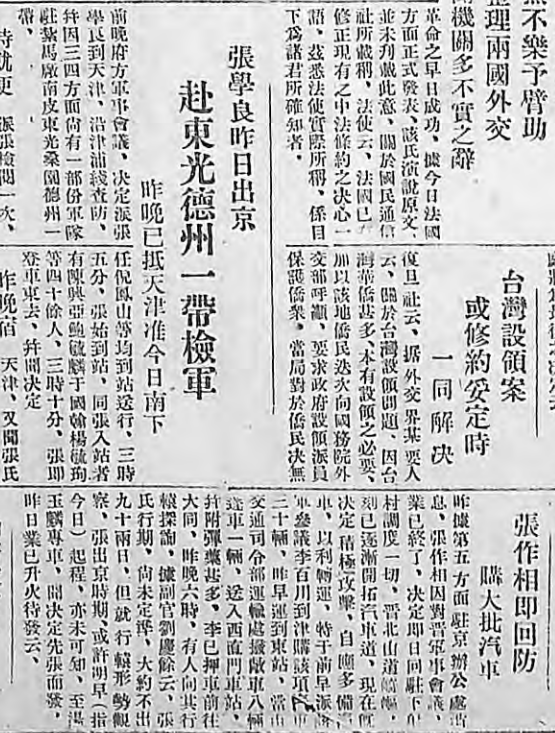 無不樂予臂助
整理兩國外交
機關多不實之辭
革命之早日成功、據今日法國
方面正式發表、該氏演說原文、
並未刋載此意、關於國民通信
社所載稱、法使云、法國已
修正現有之中法條約之決心一
語、茲悉法使實際所稱、係目
下爲諸君所確知者、
張學良昨日出京
赴東光德州一帶檢軍
昨晚已抵天津准今日南下
前晚府方軍事會議、決定派張
學良到天津、沿津浦綫查防、
幷因三四方面尙有一部份軍隊
駐紮馬廠南皮東光桑園德州一
帶、
張檢閱一次、
任倪鳳山等均到站送行、三時
五分、張始到站、同張入站者
有陳興亞鮑毓麟于國翰楊毓珣
等四十餘人、三時十分、張卽
登車東去、幷聞決定
昨晚宿
天津、又聞張氏
台灣設領案
或修約妥定時
一同解決
復旦社云、據外交界某要人
云、關於台灣設領問題、因台
灣華僑甚多、本有設領之必要、
加以該地僑民迭次向國務院外
交部呼籲、要求政府設領派員
保護僑衆、當局對於僑民决無
張作相卽回防
購大批汽車
昨據第五方面駐京辦公處消
息、張作相因對晋軍事會議、
業已終了、決定卽日回駐下
村調度一切、晋北山道崎嶇、
刻已逐漸開拓汽車道、現在旣
决定積極攻擊、自應多備
車、以利轉運、特于前早派
軍參議李百川到津購該項
三十輛、昨早運到東站、當由
交通司令部運輸處撥敞車八輛
篷車一輛、送入西直門車站、
幷附彈藥甚多、李已押車前往
大同、昨晚六時、有人向其行
轅探詢、據副官劉慶餘云、張
氏行期、尙未定準、大約不出
九十兩日、但就行轅形勢觀
察、張出京時期、或許明早（指
今日）起程、亦未可知、至湯
玉麟專車、聞决定先張而發、
昨日業已升火待發云、